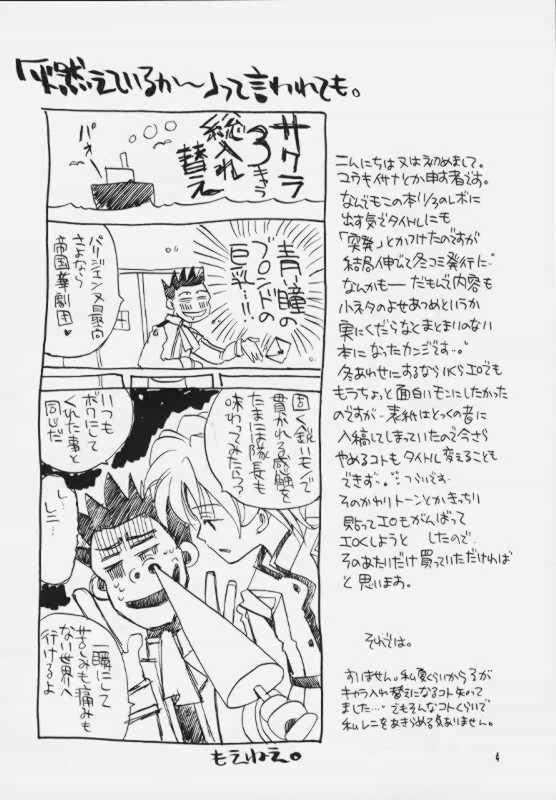 「燃えているか〜」って言われても。
サクラ
3きゅう
総入れ
替え
パオー
青い瞳の
ブロンドの
巨乳…!!
パリジェンヌ最高
さよなら
帝国華劇団♥
固く鋭いモノで
貫かれる感触を
たまには隊長も
味わってみたら?
いつも
ボクにして
くれた事と
同じだ
し…
レニ…
一瞬にして
苦しみも痛みも
ない世界へ
行けるよ
もえねえ。
こんにちは又は初めまして。
コウキイサナとか申す者です。
なんでもこの本11/3のレボに
出す気でタイトルにも
「突発」とかつけたのですが
結局伸びて冬コミ発行に…
なんかもー だもんで内容も
小ネタのよせあつめというか
実にくだらなくまとまりのない
本になったカンジです…。
もうちょっと面白いモンにしたかった
のですが…表紙はとっくの昔に
入稿してしまっていたので今さら
やめるコトもタイトル変えることも
できず…。つらいです。
そのかわりトーンとかきっちり
貼ってエロもがんばって
エロくしようと したので
そのあたりだけ買っていただければ
と思います。
それでは。
すいません。私
キャラ入れ替えになるコト知って
ました…。でもそんなコトくらいで
私レニをあきらめる気ありません。
4